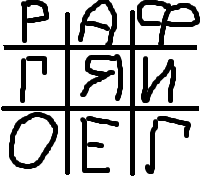 Р А Ф
Г Я И
О Е Г